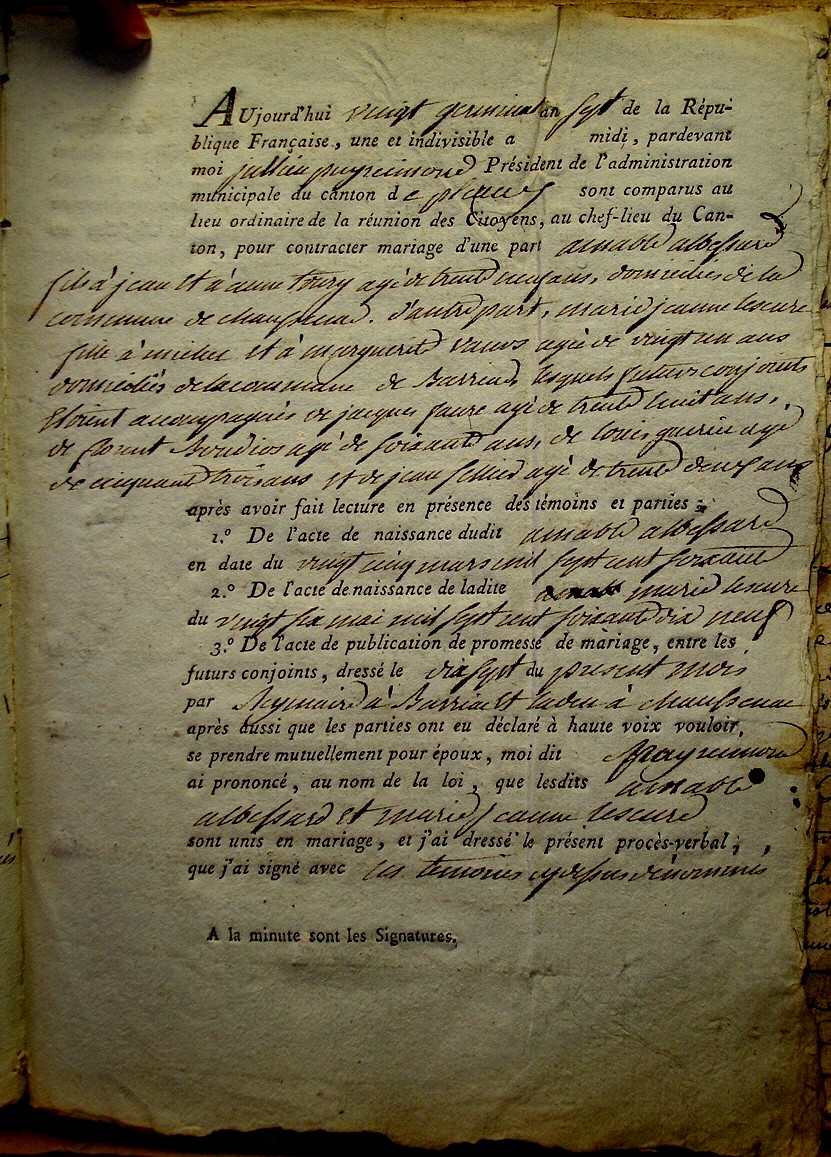 AUjourd'hui vingt germinal an sept de la Répu-
blique Française, une et indivisible a midi, pardevant
moi jullien Président de l'administration
municipale du canton de pleaux sont comparus au
lieu ordinaire de la réunion des Citoyens, au chef-lieu du Can-
ton, pour contracter mariage d'une part amable albessard
fils à jean et à anne toury agé de trente neuf ans, domiciliés de la
commune de chaussenac. d'autre part, marie jeanne lescure
fille à michel et à marguerite vaurs agée de vingt un ans
domiciliés de la commune de Barriac lesquels futurs conjoints
étoient accompagnés de jacques faure agé de trente huit ans,
de agé de soixante ans, de louis guerin agé
de cinquante trois ans et de jean agé de trente deux ans
après avoir fait lecture en présence des témoins et parties :
1.° De l'acte de naissance dudit amable albessard
en date du vingt cinq mars mil sept cent soixante
2.° De l'acte de naissance de ladite marie lescure
du vingt six mai mil sept cent soixante dix neuf
3.° De l'acte de publication de promesse de mariage, entre les
futurs conjoints, dressé le dix sept du présent mois
par à Barriac et à chaussenac
après aussi que les parties ont eu déclaré à haute voix vouloir
se prendre mutuellement pour époux, moi dit
ai prononcé, au nom de la loi, que lesdits amable
albessard et marie jeanne lescure
sont unis en mariage, et j'ai dressé le présent procès-verbal,
que j'ai signé avec les temoins cy dessus dénommés
A la minute sont les Signatures.